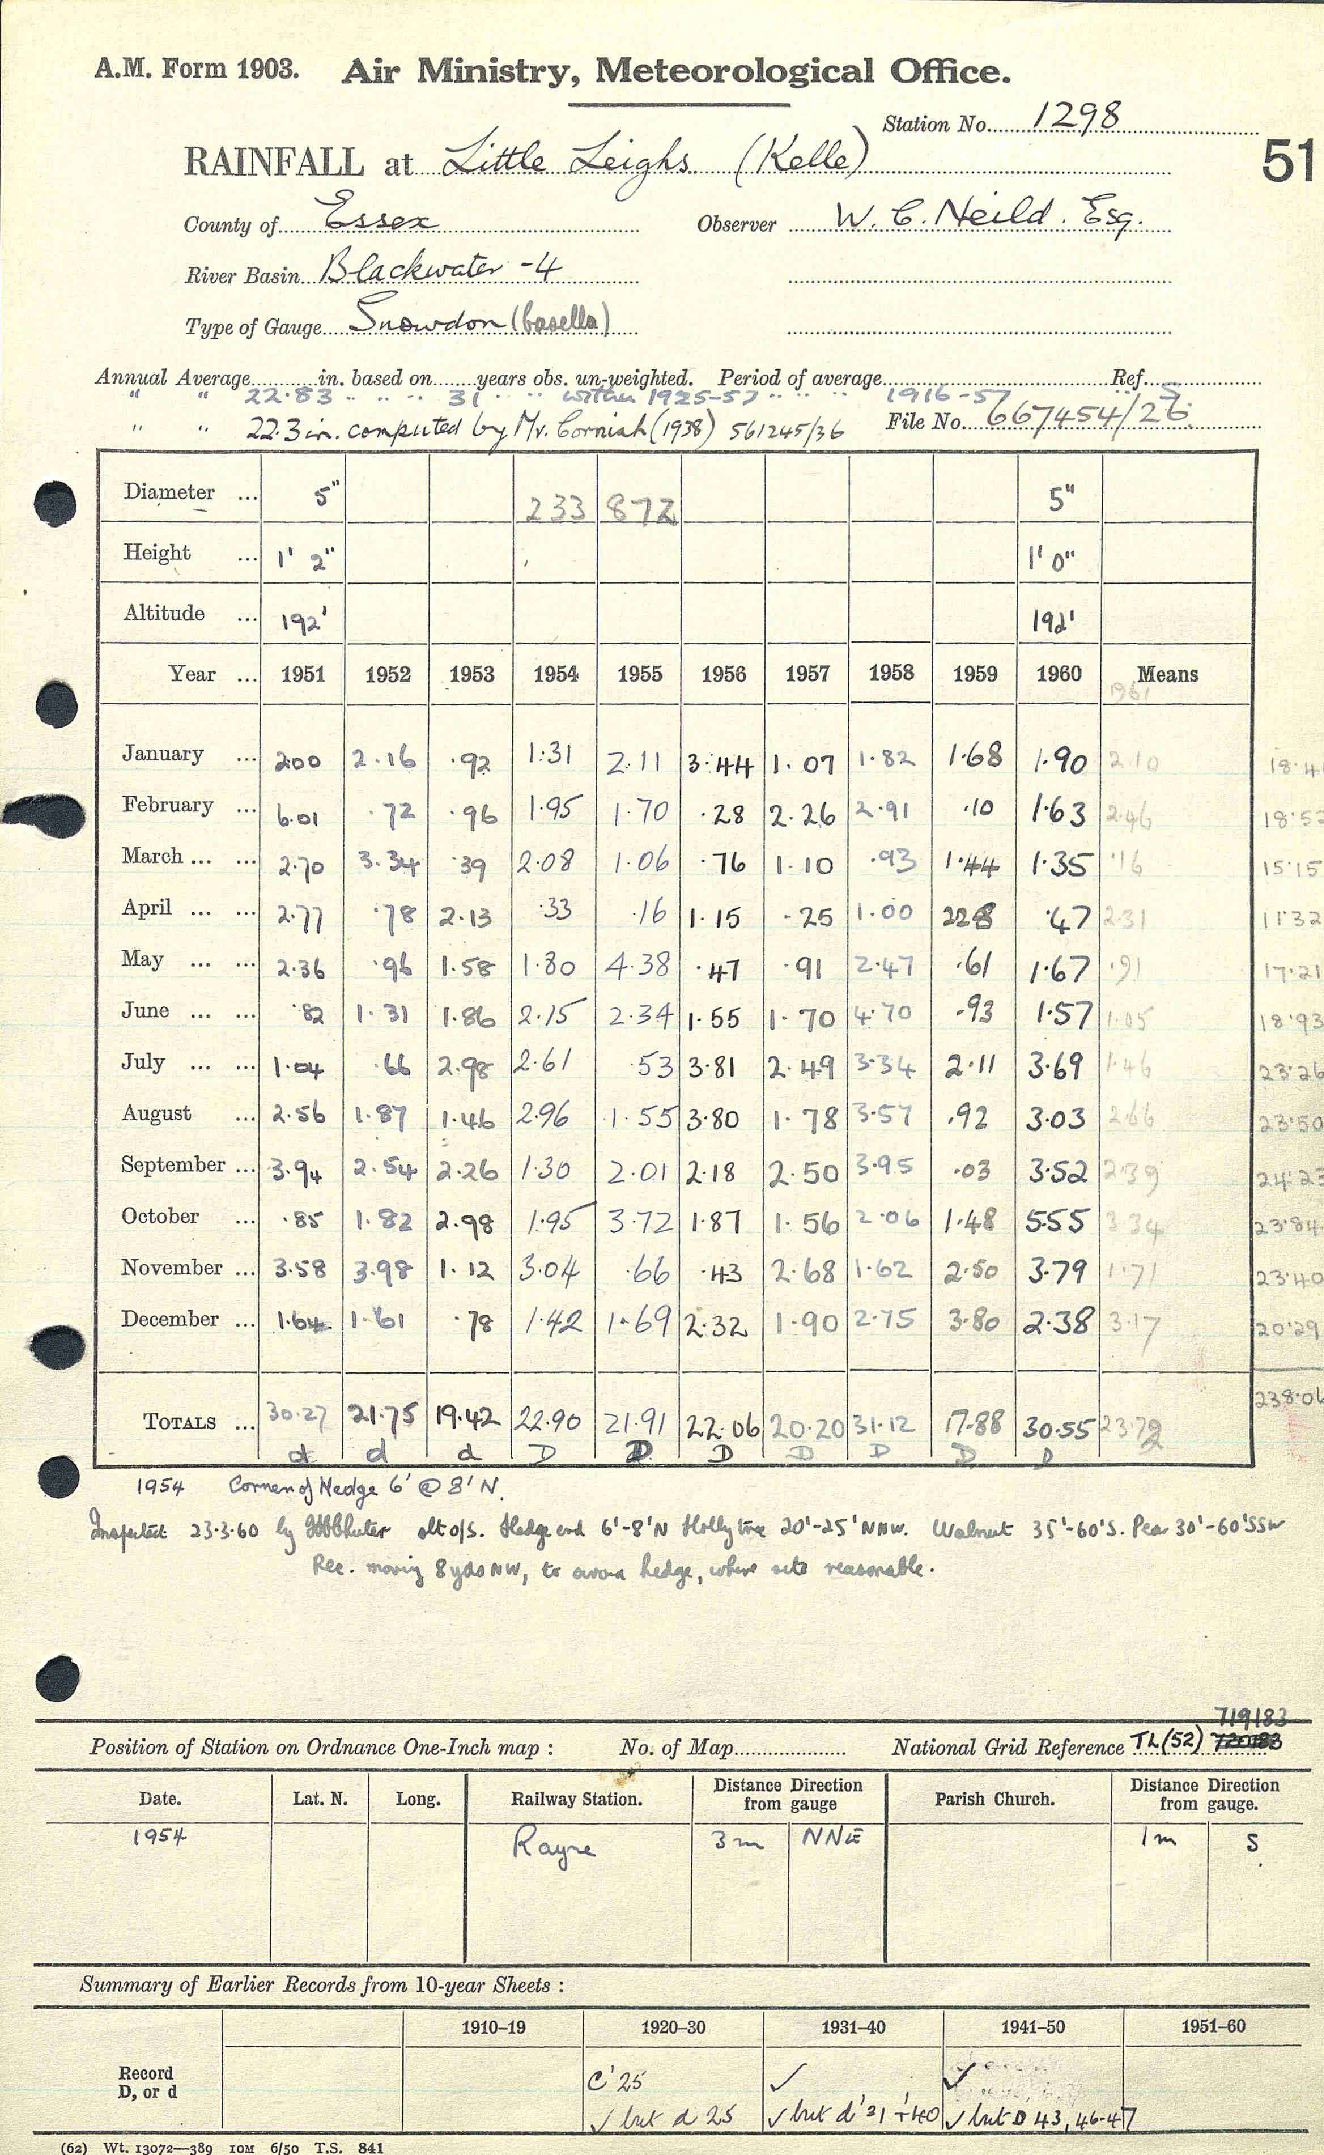 A.M. Form 1903. Air Ministry, Meteorological Office.
Station No. 1298
51
RAINFALL at Little Leighs (Kelle)
County of Essex Observer W. C. Neild. Esq.
River Basin Blackwater - 4
Type of Gauge Snowdon (Casella)
Annual Average in. based on years obs. un-weighted. Period of average Ref. S
" " 22.83 " " " 31 " " within 1925-57 " " " 1916-57
" " 22.3 in. computed by Mr. Cornish (1938) 561245/36 File No. 667454/26.
Diameter ... 5" 233 872 5"
Height ... 1' 2" 1' 0"
Altitude ... 192' 192'
Year ... 1951 1952 1953 1954 1955 1956 1957 1958 1959 1960 Means
1961
January ... 2.00 2.16 .92 1.31 2.11 3.44 1.07 1.82 1.68 1.90 2.10 18.4
February ... 6.01 .72 .96 1.95 1.70 .28 2.26 2.91 .10 1.63 2.46 18.52
March ... ... 2.70 3.34 .39 2.08 1.06 .76 1.10 .93 1.44 1.35 .16 15.15
April ... ... 2.77 .78 2.13 .33 .16 1.15 .25 1.00 2.28 .67 2.31 11.32
May ... ... 2.36 .96 1.58 1.80 4.38 .47 .91 2.47 .61 1.67 .91 17.21
June ... ... .82 1.31 1.86 2.15 2.34 1.55 1.70 4.70 .93 1.57 1.05 18.93
July ... ... 1.04 .66 2.98 2.61 .53 3.81 2.49 3.34 2.11 3.69 1.46 23.26
August ... 2.56 1.87 1.46 2.96 1.55 3.80 1.78 3.57 .92 3.03 2.66 23.50
September ... 3.94 2.54 2.26 1.30 2.01 2.18 2.50 3.95 .03 3.52 2.39 24.23
October ... .85 1.82 2.98 1.95 3.72 1.87 1.56 2.06 1.48 5.55 3.34 23.84
November ... 3.58 3.98 1.12 3.04 .66 .43 2.68 1.62 2.50 3.79 1.71 23.40
December ... 1.64 1.61 .78 1.42 1.69 2.32 1.90 2.75 3.80 2.38 3.17 20.29
TOTALS ... 30.27 21.75 19.42 22.90 21.91 22.06 20.20 31.12 17.88 30.55 23.72 238.06
d d d D D D D D D D
1954 Corner of Hedge 6' @ 8' N.
Inspected 23.3.60 by alt o/s. Hedge end 6'-8'N Holly tree 20'-25'NNW. Walnut 35'-60'S. Pear 30'-60'SSW
Rec. moving 8 yds NW, to avoid hedge, where site reasonable.
719183
Position of Station on Ordnance One-Inch map : No. of Map National Grid Reference TL(52) 720183
Date. Lat. N. Long. Railway Station. Distance Direction from gauge Parish Church. Distance Direction from gauge.
1954 Rayne 3m NNE 1m S
Summary of Earlier Records from 10-year Sheets :
1910–19 1920–30 1931–40 1941–50 1951–60
Record C '25 ✓ ✓
D, or d ✓ but d 25 ✓ but d '31 + '40 ✓ but D 43, 46-47
(62) Wt. 13072—389 10M 6/50 T.S. 841